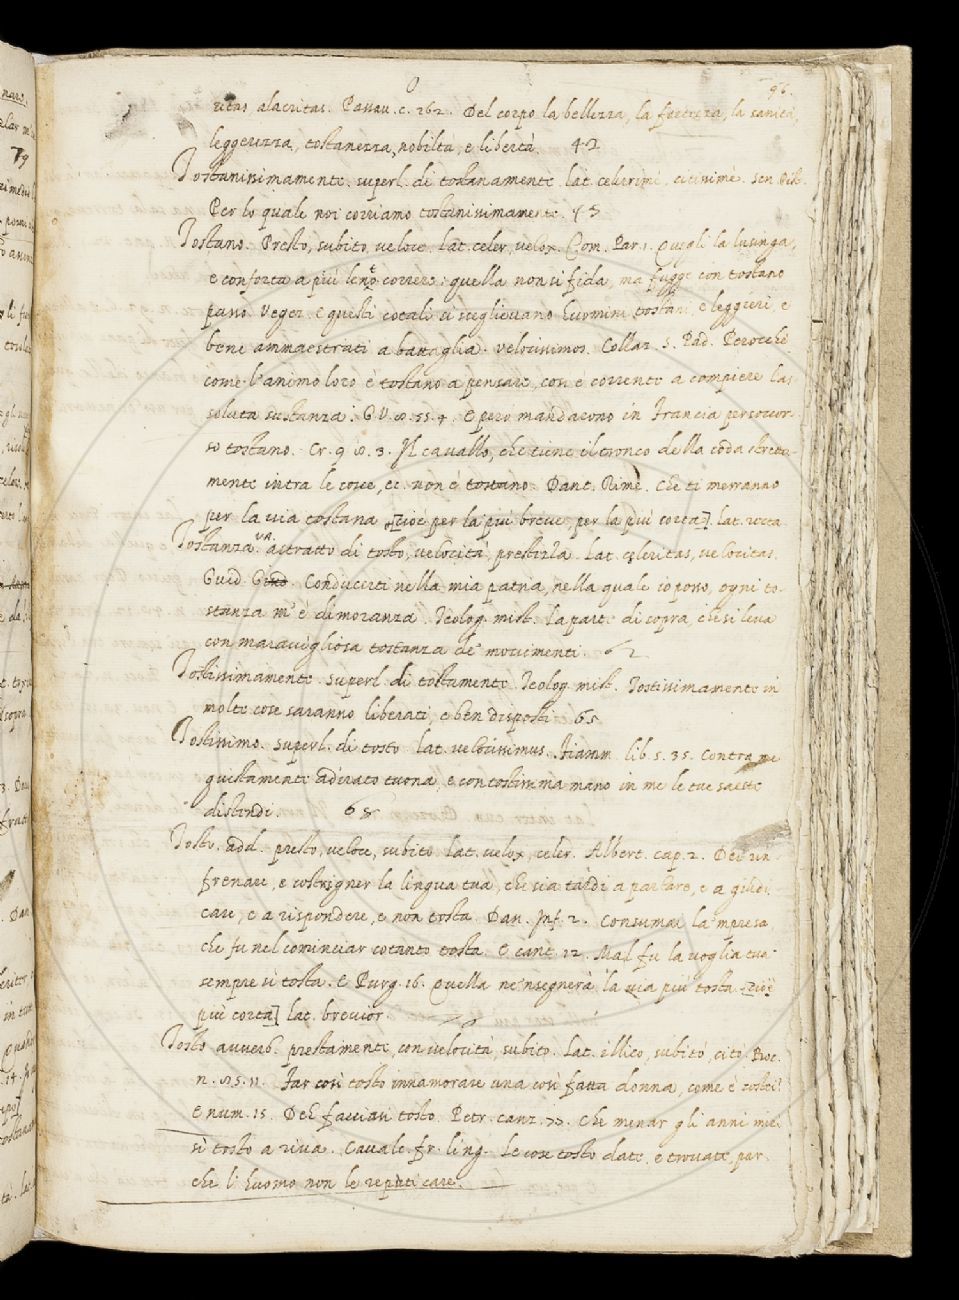 O
96.
vitas alacritas. Passav. c. 262. Del corpo la bellezza, la fortezza, la sanità,
leggerezza, tostanezza, nobiltà, e libertà. 42
Tostanissimamente. superl. di tostanamente. lat. celerrimè, citissimè. Sen. Pist.
Per lo quale noi corriamo tostanissimamente.
Tostano. Presto, subito, veloce. lat. celer, velox. Com. Par. 1. Quegli la lusinga,
e conforta a più lene correre: quella non si fida, ma fugge con tostano
passo. Veget. E questi cotali si sceglievano huomini tostani, e leggieri, e
bene ammaestrati a battaglia. velocissimos. Collaz. S. Pad. Perocchè
come l'animo loro è tostano a pensare, così è corrente a compiere la
soluta sustanza. G.V. 8. 55. 4. E però mandarono in Francia per soccor-
so tostano. Cr. 9. 8. 3. Il cavallo, che tiene il tronco della coda stretta-
mente intra le cosce, ec. non è tostano. Dant. Rime. Che ti merranno
per la via tostana [cioè per la più breve, per la più corta] lat. recta
Tostanza. v.A. astratto di tosto, velocità, prestezza. Lat. celeritas, velocitas.
Guid. G. Conducerti nella mia patria, nella quale io posso, ogni to-
stanza m'è dimoranza. Teolog. mist. La parte di sopra, che si leva
con maravigliosa tostanza de' movimenti. 62
Tostissimamente. superl. di tostamente. Teolog. mist. Tostissimamente in
molte cose saranno liberati, e ben disposti. 65
Tostissimo. Superl. di tosto. lat. velocissimus. Fiamm. lib. 5. 35. Contra me
giustamente adirato tuona, e con tostissima mano in me le tue saette
distendi. 68
Tosto. add. presto, veloce, subito. lat. velox, celer. Albert. cap. 2. Dei in-
frenare, e costrigner la lingua tua, che sia tardi a parlare, e a giudi-
care, e a rispondere, e non tosta. Dan. Inf. 2. Consumai la mpresa,
che fu nel cominciar cotanto tosta. E cant. 12. Mal fu la voglia tua
sempre sì tosta. E Purg. 16. Quella ne 'nsegnerà la via più tosta [cioè
più corta] lat. brevior.
Tosto. avverb. prestamente, con velocità, subito. Lat. illico, subitò, citò. Boc.
n. 85. 11. Far così tosto innamorare una così fatta donna, come è costei?
E num. 15. Deh facciasi tosto. Petr. canz. Che menar gli anni miei
sì tosto a riva. Cavalc. fr. ling. Le cose tosto date, e trovate, par
che l'huomo non le reputi care.